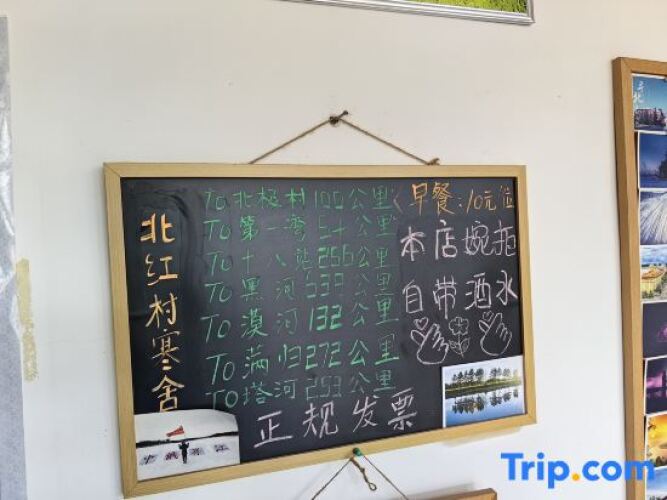 北红村寒舍
To北极村100公里
To第一湾54公里
To十八站256公里
To黑河639公里
To漠河132公里
To满归272公里
To塔河253公里
早餐:10元位
本店婉拒
自带酒水
正规发票
Trip.com